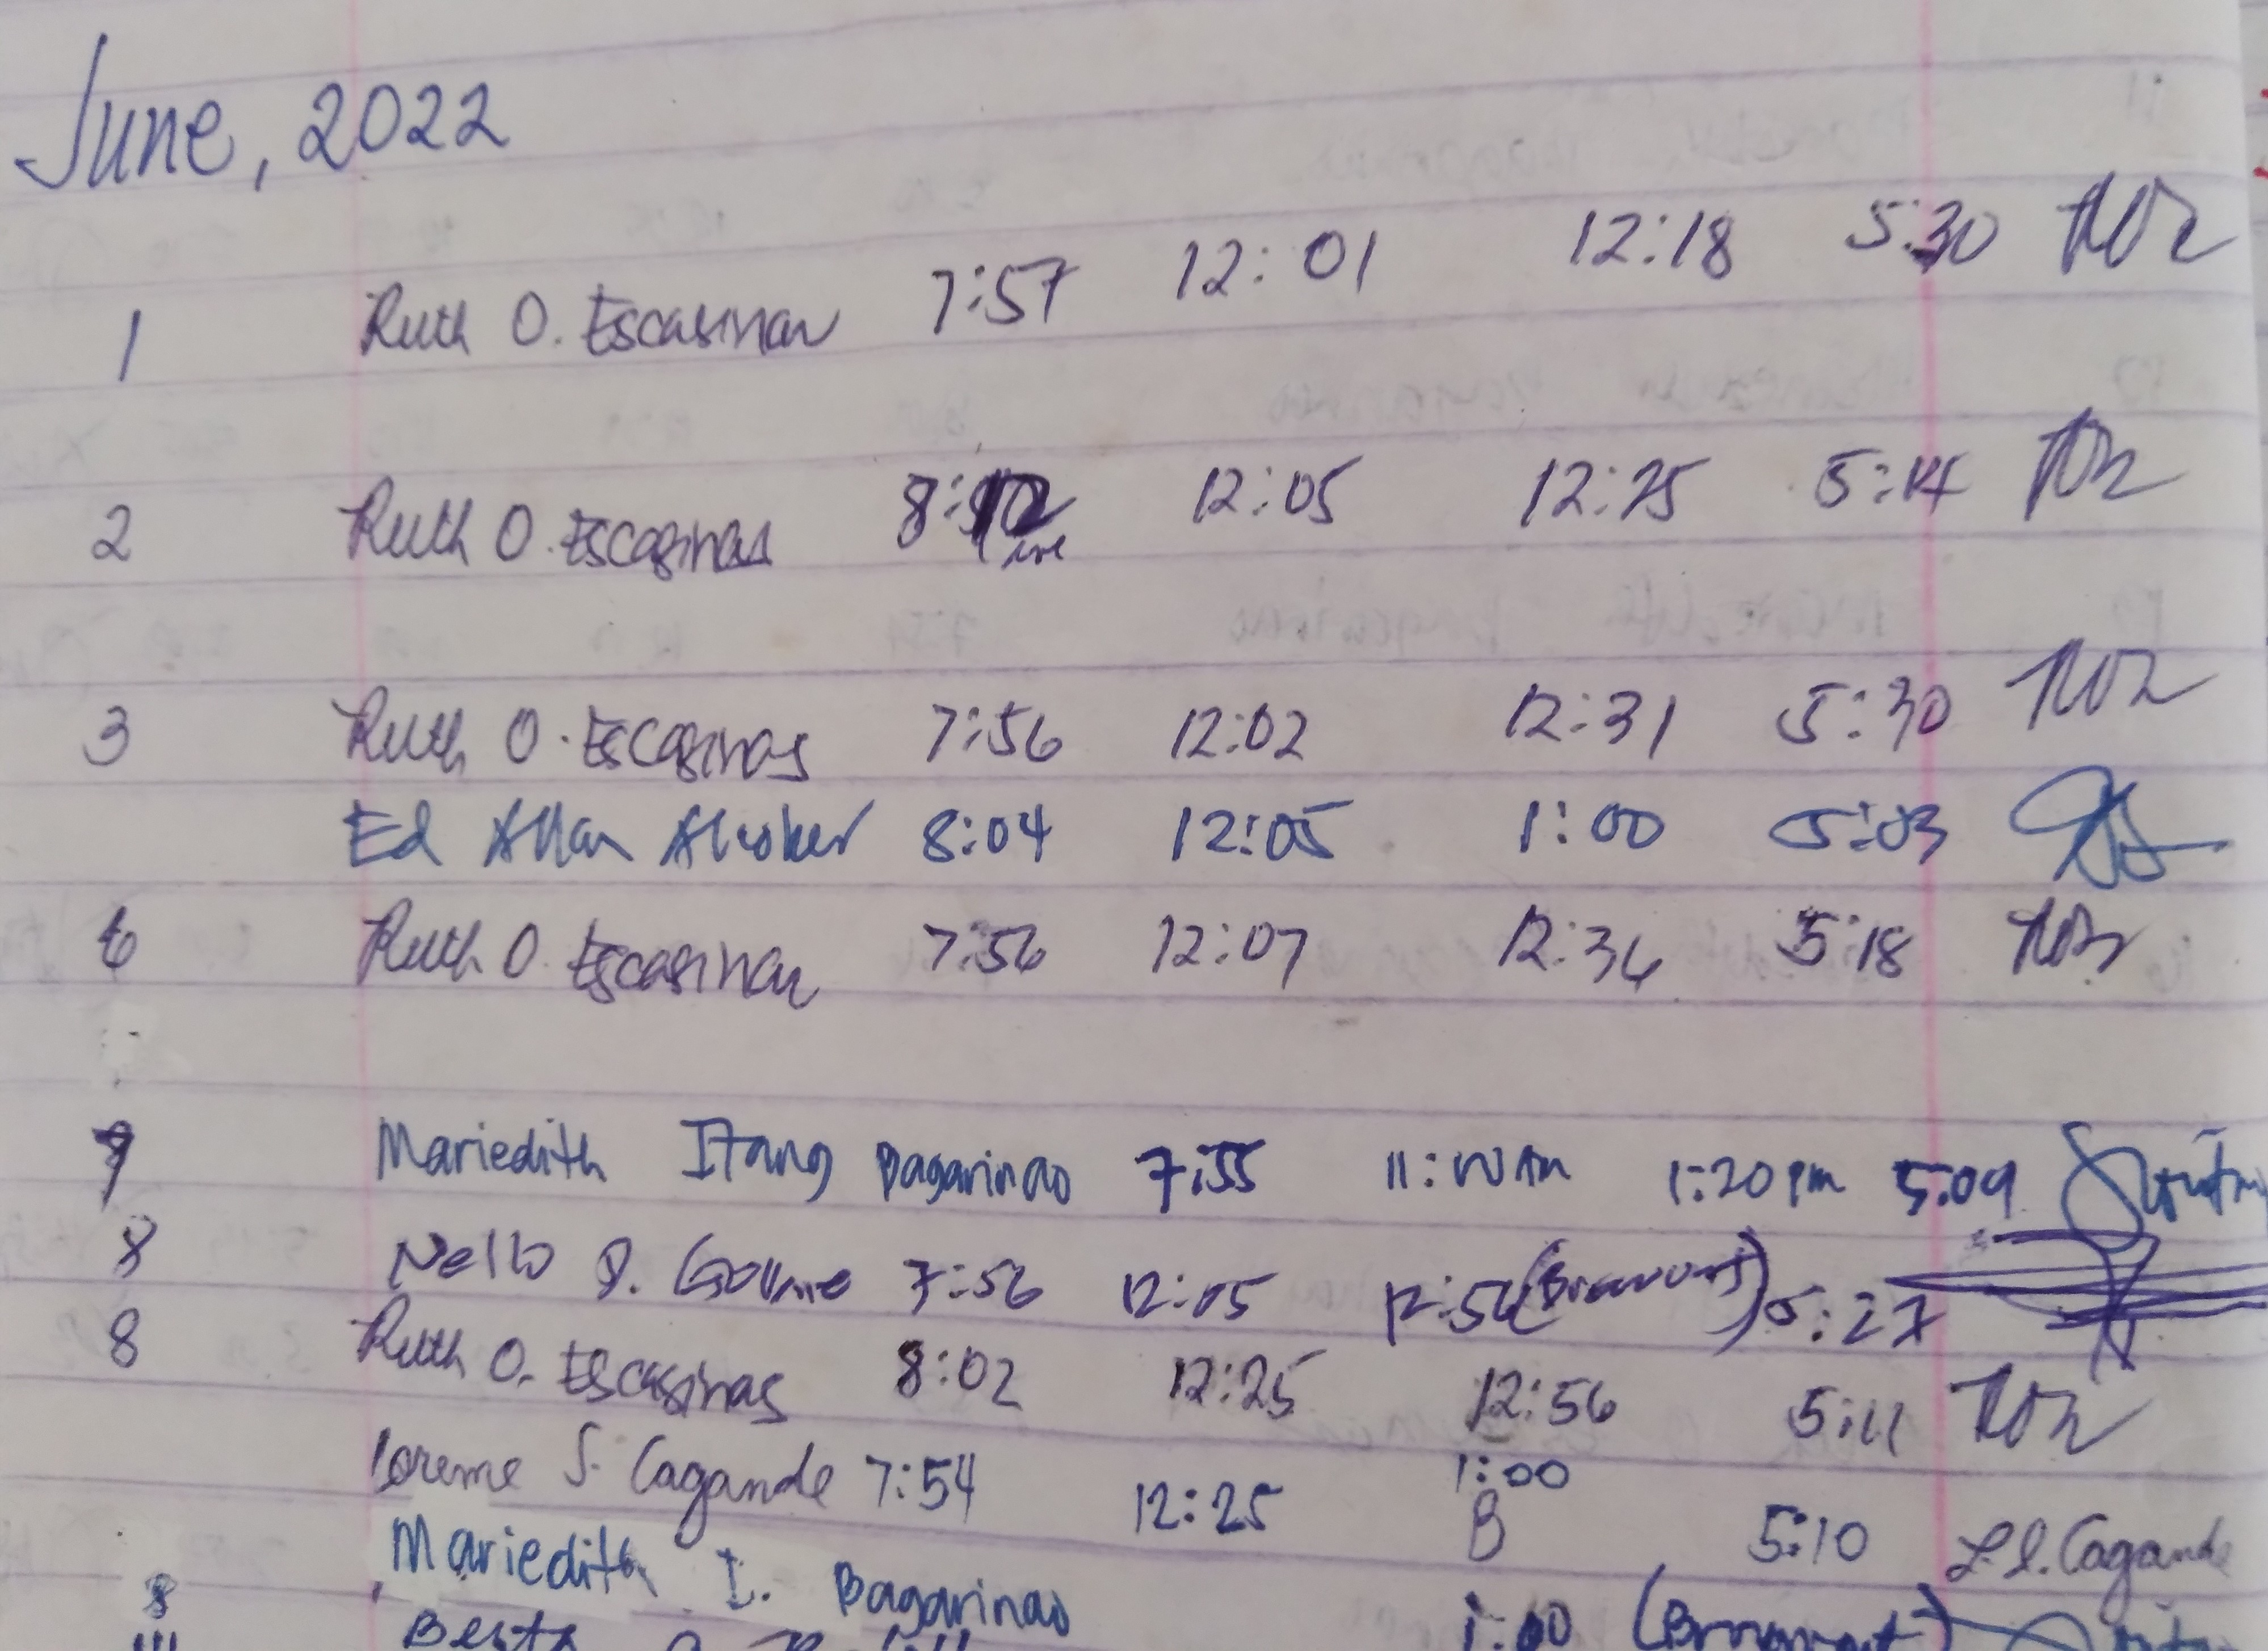 June, 2022
1 Ruth O. Escasinas 7:57 12:01 12:18 5:30
2 Ruth O. Escasinas 8:12 12:05 12:25 5:14
3 Ruth O. Escasinas 7:56 12:02 12:31 5:30
Ed Allan 8:04 12:05 1:00 5:03
6 Ruth O. Escasinas 7:56 12:07 12:36 5:18
7 Mariedith Itang Bagarinao 7:55 11:00 Am 1:20 pm 5:09
8 Nello 7:56 12:05 12:56 5:27
8 Ruth O. Escasinas 8:02 12:25 12:56 5:11
Loreme S. Cagande 7:54 12:25 1:00 B 5:10 L.S. Cagande
8 Mariedith I. Bagarinao 1:00